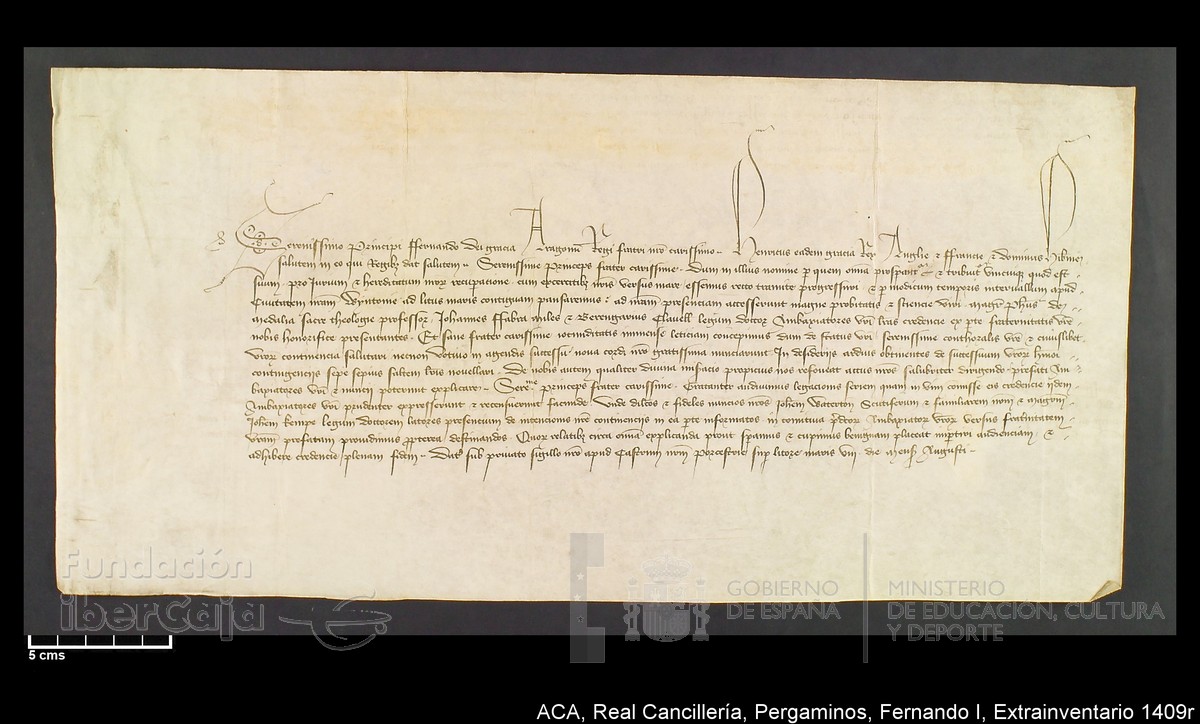 Serenissimo Principi ffernando Dei gracia Aragonum Regi fratri nro carissimo Henricus eadem gracia Rex Anglie & ffrancie & Dominus Hibnie
salutem in eo qui Regibz dat salutem Serenissime Princeps frater carissime Dum in illius nomine p quem omia & tribuit unicuiqz quod est
suum pro Jurium & hereditatum nrorz recuperatione cum exercitibz nris versus mare essemus recto tramite progressuri & p modicum temporis intervallum apud
Civitatem nram Wyntonie ad litus maris contiguam pausaremus ad nram presenciam accesserunt magne probitatis & sciencie viri magr Phus de
medalia sacre theologie professor Johannes ffabra miles & Berengarius Clavell legum doctor Ambaxiatores vri lras credencie ex pte fraternitatis vre
nobis honorifice presentantes Et sane frater carissime noviter immense leticiam concepimus dum de status vri serenissime conthoralis vre & cuiuslibet
vror continencia salutari necnon votivo in agendis successu nova cordi nro gratissima nunciarunt In desiderijs ardius obtinentes de successuum vror hmoi
contingencijs sepe sepius saltem lris novellari De nobis autem qualiter divina propicius nos refoveat actus nros salubriter dirigendo prefati Am
baxiatores vri & nuncij poterunt explicare Serme princeps frater carissime Gratanter audivimus legacionis seriem quam in vim comisse eis credencie ijdem
Ambaxiatores vri prudenter expresserunt & recensuerunt facunde Unde dilcos & fideles nuncios nros Johem Waterton Scutiferum & familiarem nrm & magrum
Johem kempe legum doctorem latores presencium de intencionis nre continencijs in ea pte informatos in comitiva pdcor Ambaxiator vror versus frafnitatem
vram prefatam providimus ppterea destinandos Quor relatibz circa omia explicanda prout speramus & cupimus benignam placeat imptiri audienciam &
adhibere credencie plenam fidem Dat sub privato sigillo nro apud Castrum nrm Porcestrie sup litore maris viij die mens Augusti
Fundación
iberCaja
GOBIERNO
DE ESPAÑA
MINISTERIO
DE EDUCACIÓN, CULTURA
Y DEPORTE
5 cms
ACA, Real Cancillería, Pergaminos, Fernando I, Extrainventario 1409r